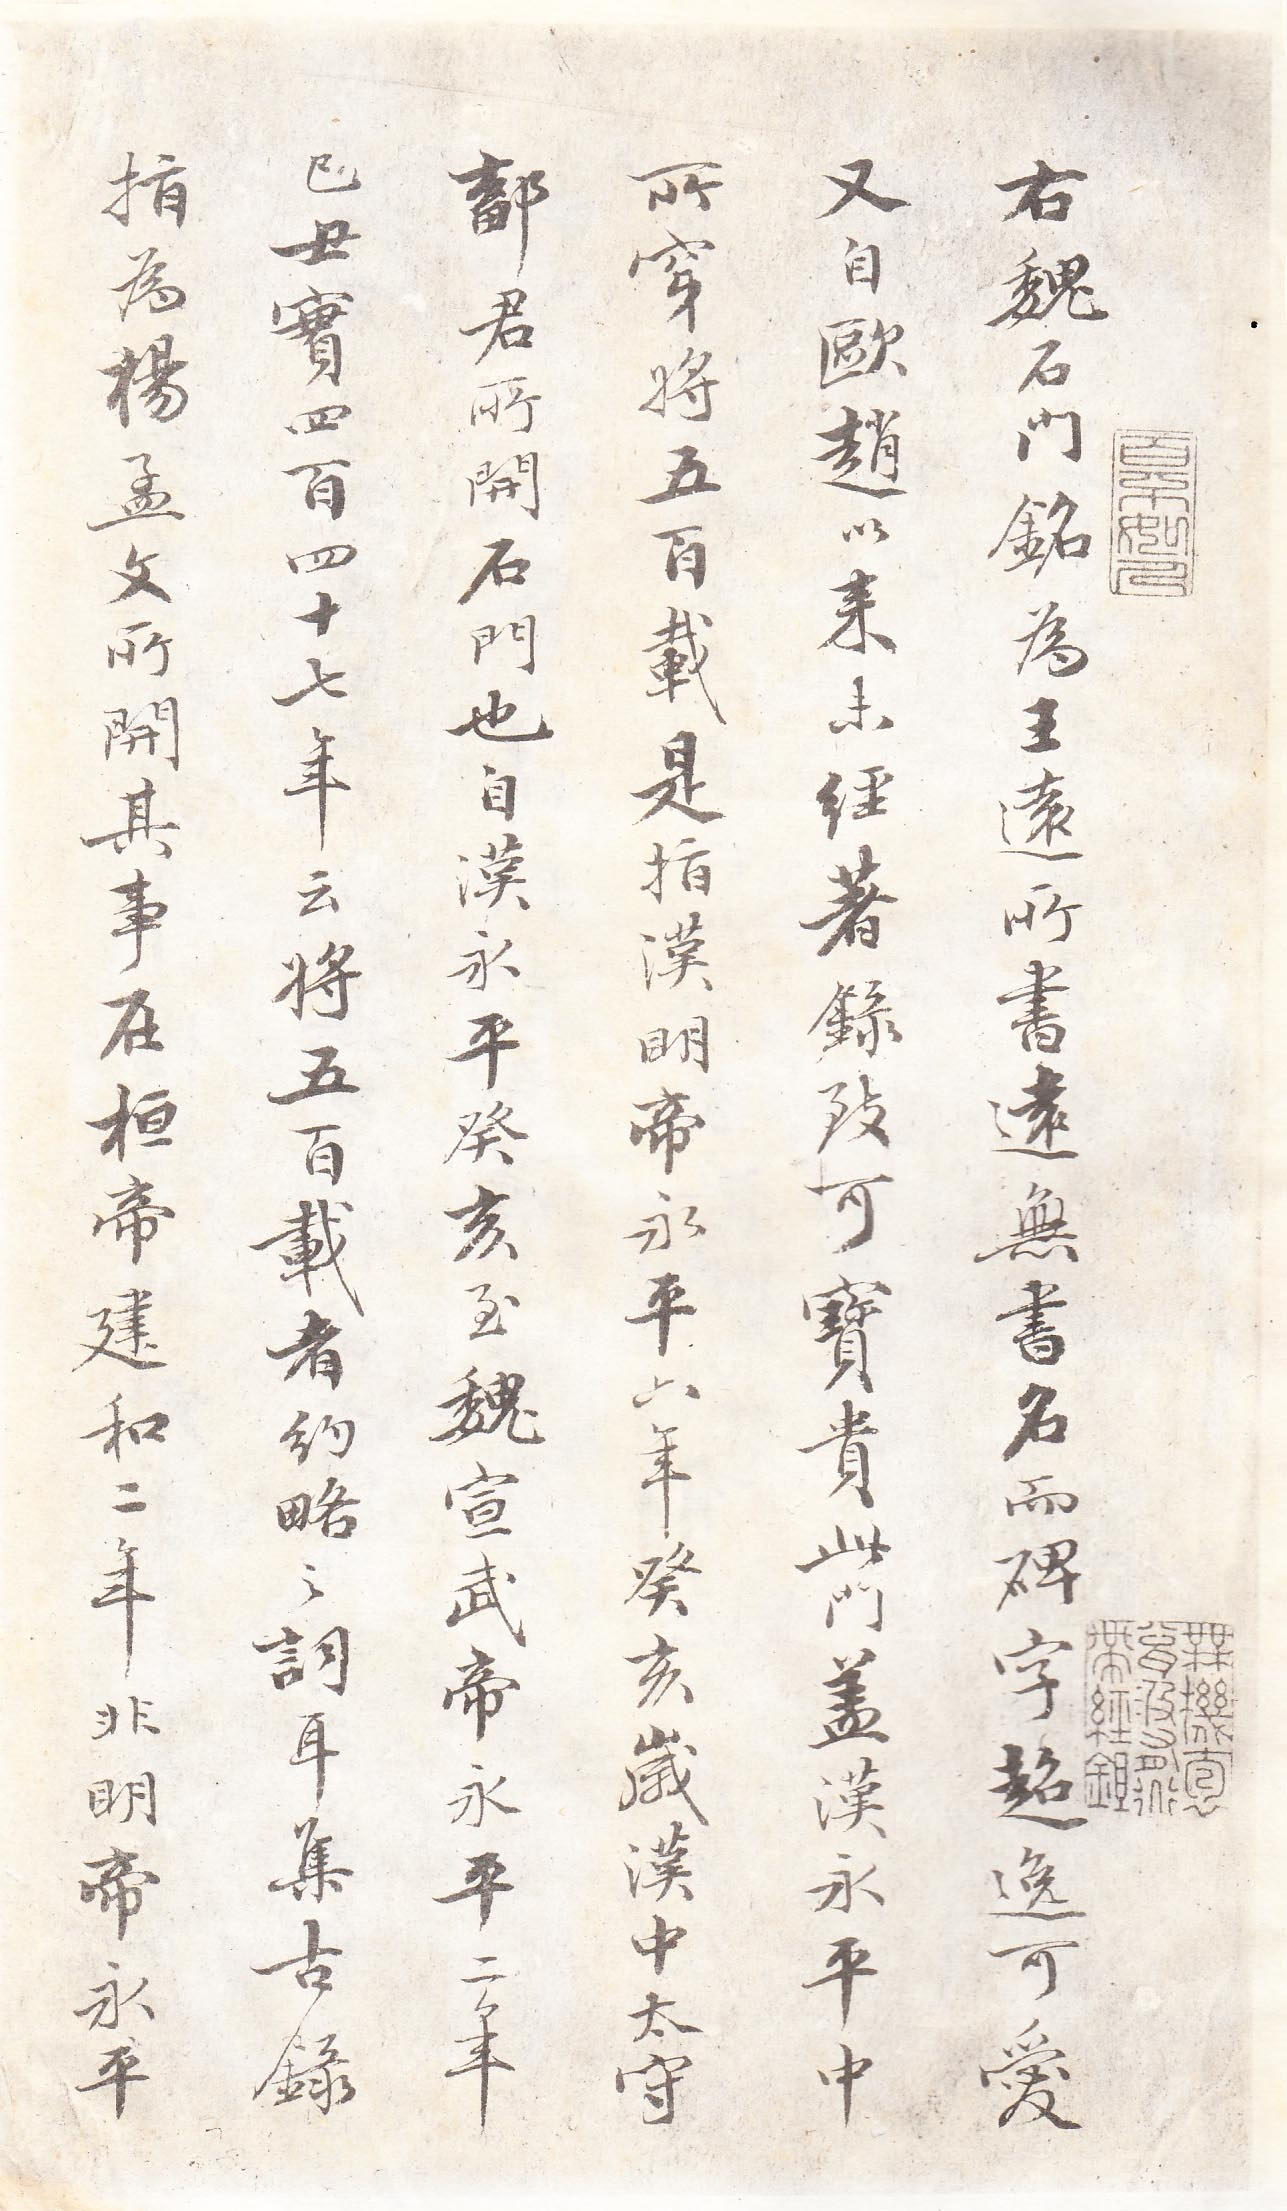 右魏石門銘為王遠所書遠無書名而碑字超逸可愛
又自歐趙以来未經著錄致可寶貴此門蓋漢永平中
所穿將五百載是指漢明帝永平六年癸亥歲漢中太守
鄐君所開石門也自漢永平癸亥至魏宣武帝永平二年
己丑實四百四十七年云將五百載者約略之詞耳集古錄
指為楊孟文所開其事在桓帝建和二年非明帝永平